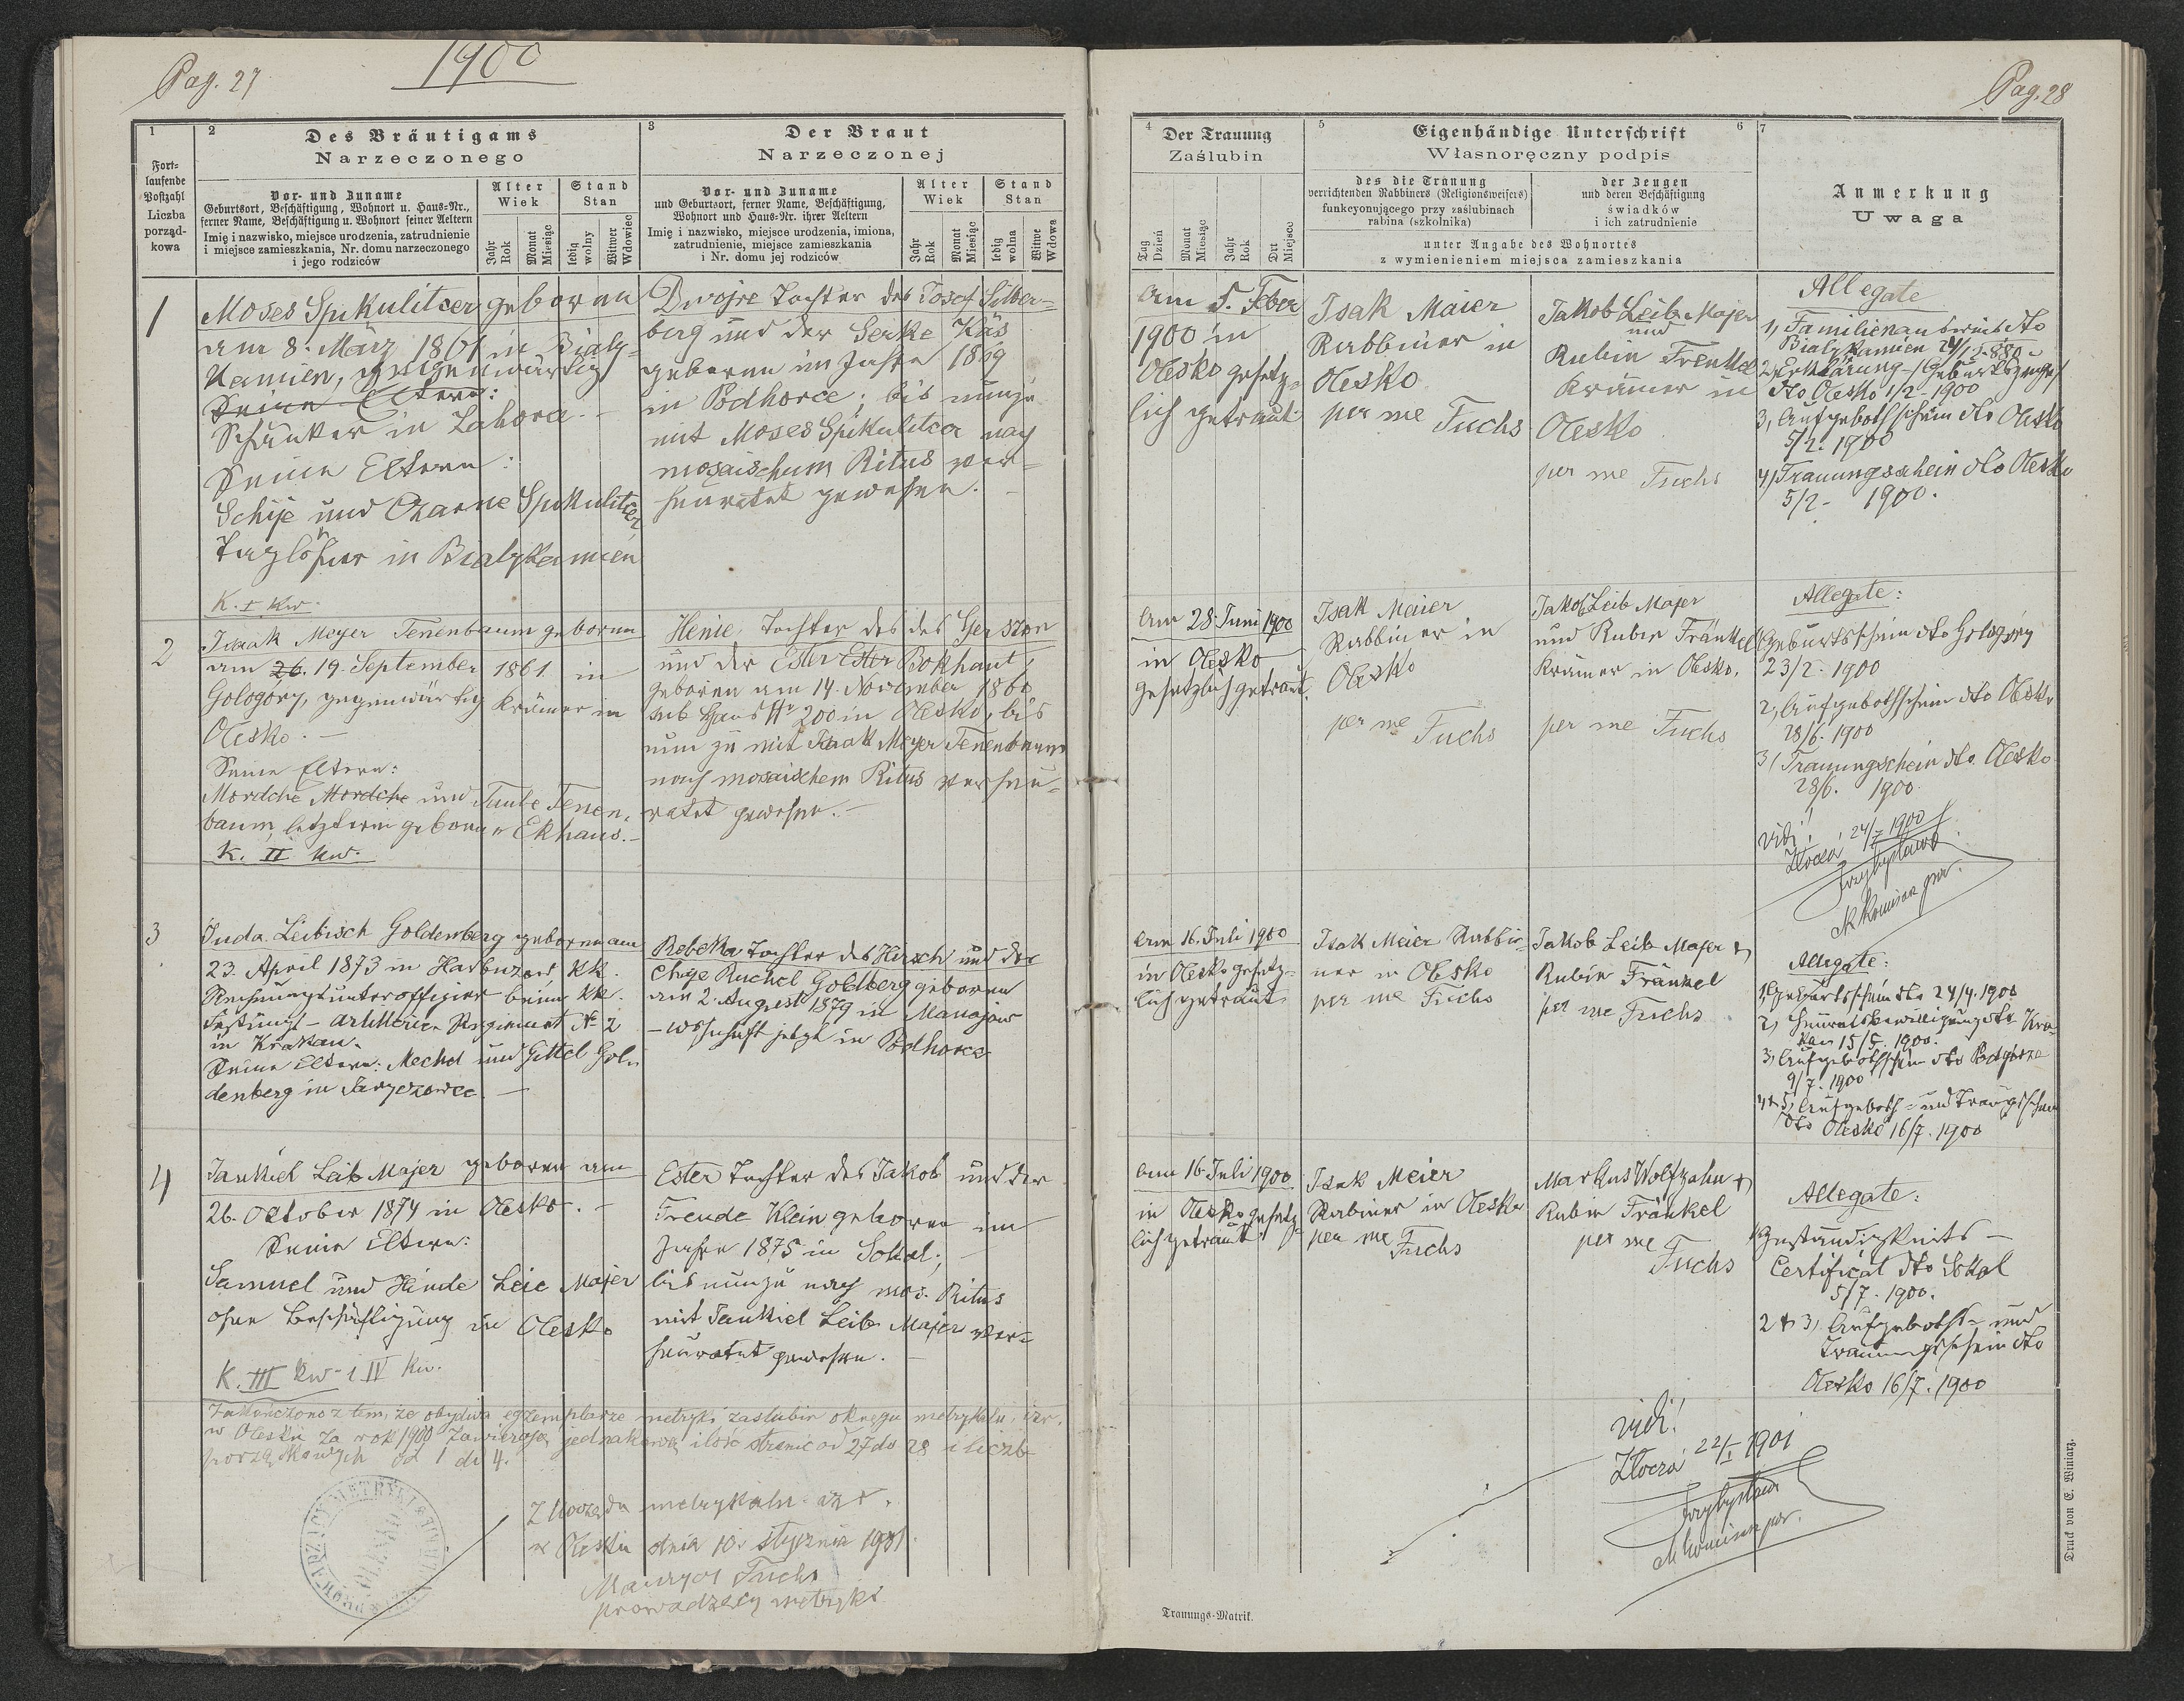 Pag. 27
1900
1
2
Des Bräutigams
Narzeczonego
3
Der Braut
Narzeczonej
Fort-
laufende
Postzahl
Liczba
porząd-
kowa
Vor- und Zuname
Geburtsort, Beschäftigung, Wohnort u. Haus-Nr.,
ferner Name, Beschäftigung u. Wohnort seiner Aeltern
Imię i nazwisko, miejsce urodzenia, zatrudnienie
i miejsce zamieszkania, Nr. domu narzeczonego
i jego rodziców
Alter
Wiek
Jahr
Rok
Monat
Miesiąc
Stand
Stan
ledig
wolny
Witwer
Wdowiec
Vor- und Zuname
und Geburtsort, ferner Name, Beschäftigung,
Wohnort und Haus-Nr. ihrer Aeltern
Imię i nazwisko, miejsce urodzenia, imiona,
zatrudnienie, miejsce zamieszkania
i Nr. domu jej rodziców
Alter
Wiek
Jahr
Rok
Monat
Miesiąc
Stand
Stan
ledig
wolna
Witwe
Wdowa
1
Moses Spikulitzer geboren
am 8. März 1861 in Bialy-
Kamien, gegenwärtig
Seine Eltern:
Schänker in Zahorce. -
Seine Eltern:
Schije und Czarne Spikulitzer
Taglöhner in Bialykamien
K. I kw.
Dwojre Tochter des Josef Silber-
berg und der Serke Käs
geboren im Jahre 1869
in Podhorce; bis nunzu
mit Moses Spikulitzer nach
mosaischem Ritus ver-
heuratet gewesen. -
2
Isaak Meyer Tenenbaum geboren
am 26. 19. September 1861 in
Gologóry, gegenwärtig Krämer in
Olesko. -
Seine Eltern:
Mordche Mordche und Taube Tenen-
baum, letztere geborene Ekhaus. -
K. II kw.
Henie, Tochter des des Gerszon
und der Ester Ester Bokhaut,
geboren am 14. November 1860
sub Haus Nr 200 in Olesko, bis
nun zu mit Isaak Meyer Tenenbaum
nach mosaischem Ritus verheu-
ratet gewesen. -
3
Juda Leibisch Goldenberg geboren am
23. April 1873 in Harbuzow kk.
Rechnungsunteroffizier beim kk.
Festungs-Artillerie Regiment No 2
in Krakau.
Seine Eltern: Mechel und Gittel Gol-
denberg in Jaryczowce -
Rebeka Tochter des Hirsch und der
Chaje Ruchel Goldberg geboren
am 2. August 1879 in Manajow
- wohnhaft jetzt in Podhorce
4
Jankiel Leib Majer geboren am
26. Oktober 1874 in Olesko. -
Seine Eltern:
Samuel und Hinde Leie Majer
ohne Beschäftigung in Olesko
K. III kw. i IV kw.
Ester Tochter des Jakob und der
Freude Klein geboren im
Jahre 1875 in Sokal; -
bis nunzu nach mos. Ritus
mit Jankiel Leib Majer ver-
heuratet gewesen. -
Zakończono z tem, że obydwa egzemplarze metryki zaslubin okręgu metrykaln. izr.
w Olesku za rok 1900 zawierają jednakową ilość stronic od 27 do 28 i liczb
porządkowych od 1 do 4.
Z Urzędu metrykaln. izr.
w Olesku dnia 10. stycznia 1901.
Maurycy Fuchs
prowadzący metryki
Pag. 28
4
Der Trauung
Zaślubin
5
Eigenhändige Unterschrift
Własnoręczny podpis
6
7
Tag
Dzień
Monat
Miesiąc
Jahr
Rok
Ort
Miejsce
des die Trauung
verrichtenden Rabbiners (Religionsweisers)
funkcyonującego przy zaślubinach
rabina (szkolnika)
der Zeugen
und deren Beschäftigung
świadków
i ich zatrudnienie
unter Angabe des Wohnortes
z wymienieniem miejsca zamieszkania
Anmerkung
Uwaga
Am 5. Feber
1900 in
Olesko gesetz-
lich getraut
Isak Maier
Rabbiner in
Olesko
per me Fuchs
Jakob Leib Majer
und
Rubin Frenkel
Krämer in
Olesko
per me Fuchs
Allegate
1, Familienausweis dto
Bialykamien
2, Erklärung - (Geburtszeugn)
dto Olesko 1/2 - 1900
3, Aufgebothschein dto Olesko
5/2. 1900
4) Trauungsschein dto Olesko
5/2 - 1900.
Am 28. Juni 1900
in Olesko
gesetzlich getraut.
Isak Maier
Rabbiner in
Olesko
per me Fuchs
Jakob Leib Majer
und Rubin Fränkel
Krämer in Olesko.
per me Fuchs
Allegate:
1) Geburtsschein dto Gologóry
23/2. 1900
2, Aufgebothschein dto Olesko
28/6. 1900
3) Trauungschein dto Olesko
28/6. 1900.
vidi!
24/7 1900
Am 16. Juli 1900
in Olesko gesetz-
lich getraut.
Isak Meier Rabbi-
ner in Olesko
per me Fuchs
Jakob Leib Majer &
Rubin Fränkel
per me Fuchs
Allegate:
1, Geburtsschein dto 24/4. 1900
2, Heuratsbewilligung dto Kra-
kau 15/5. 1900.
3, Aufgebothschein dto Podgórze
9/7. 1900
4 & 5, Aufgeboth- und Traugsschein
dto Olesko 16/7. 1900
Am 16. Juli 1900
in Olesko gesetz-
lich getraut
Isak Meier
Rabiner in Olesko
per me Fuchs
Markus Wolfzahn &
Rubin Fränkel
per me
Fuchs
Allegate:
1, Zuständigkeits -
Certificat dto Sokal
5/7. 1900.
2 & 3, Aufgeboths- und
Trauungsschein dto
Olesko 16/7. 1900
vidi!
22/I 1901
Trauungs-Matrik.
Druck von E. Winiarz.